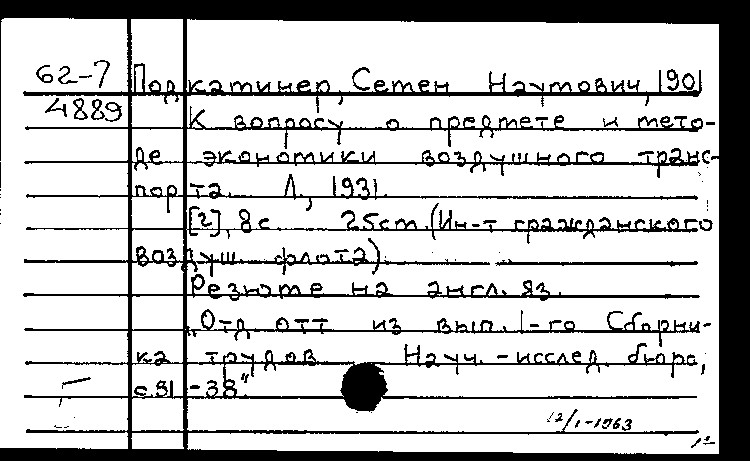 62-7
4889
Подкатинер, Сетен Наутович, 1901
К вопросу о предтете и тето-
де экономики воздушного транс-
порта. Л., 1931.
[2], 8 с. 25 cm. (Ин-т гражданского
воздуш. флота)
Резюте на англ. яз.
„Отд. отт из вып. 1-го Сборни-
ка трудов Науч.-исслед. бюро,
с. 31-38"
12/1-1963